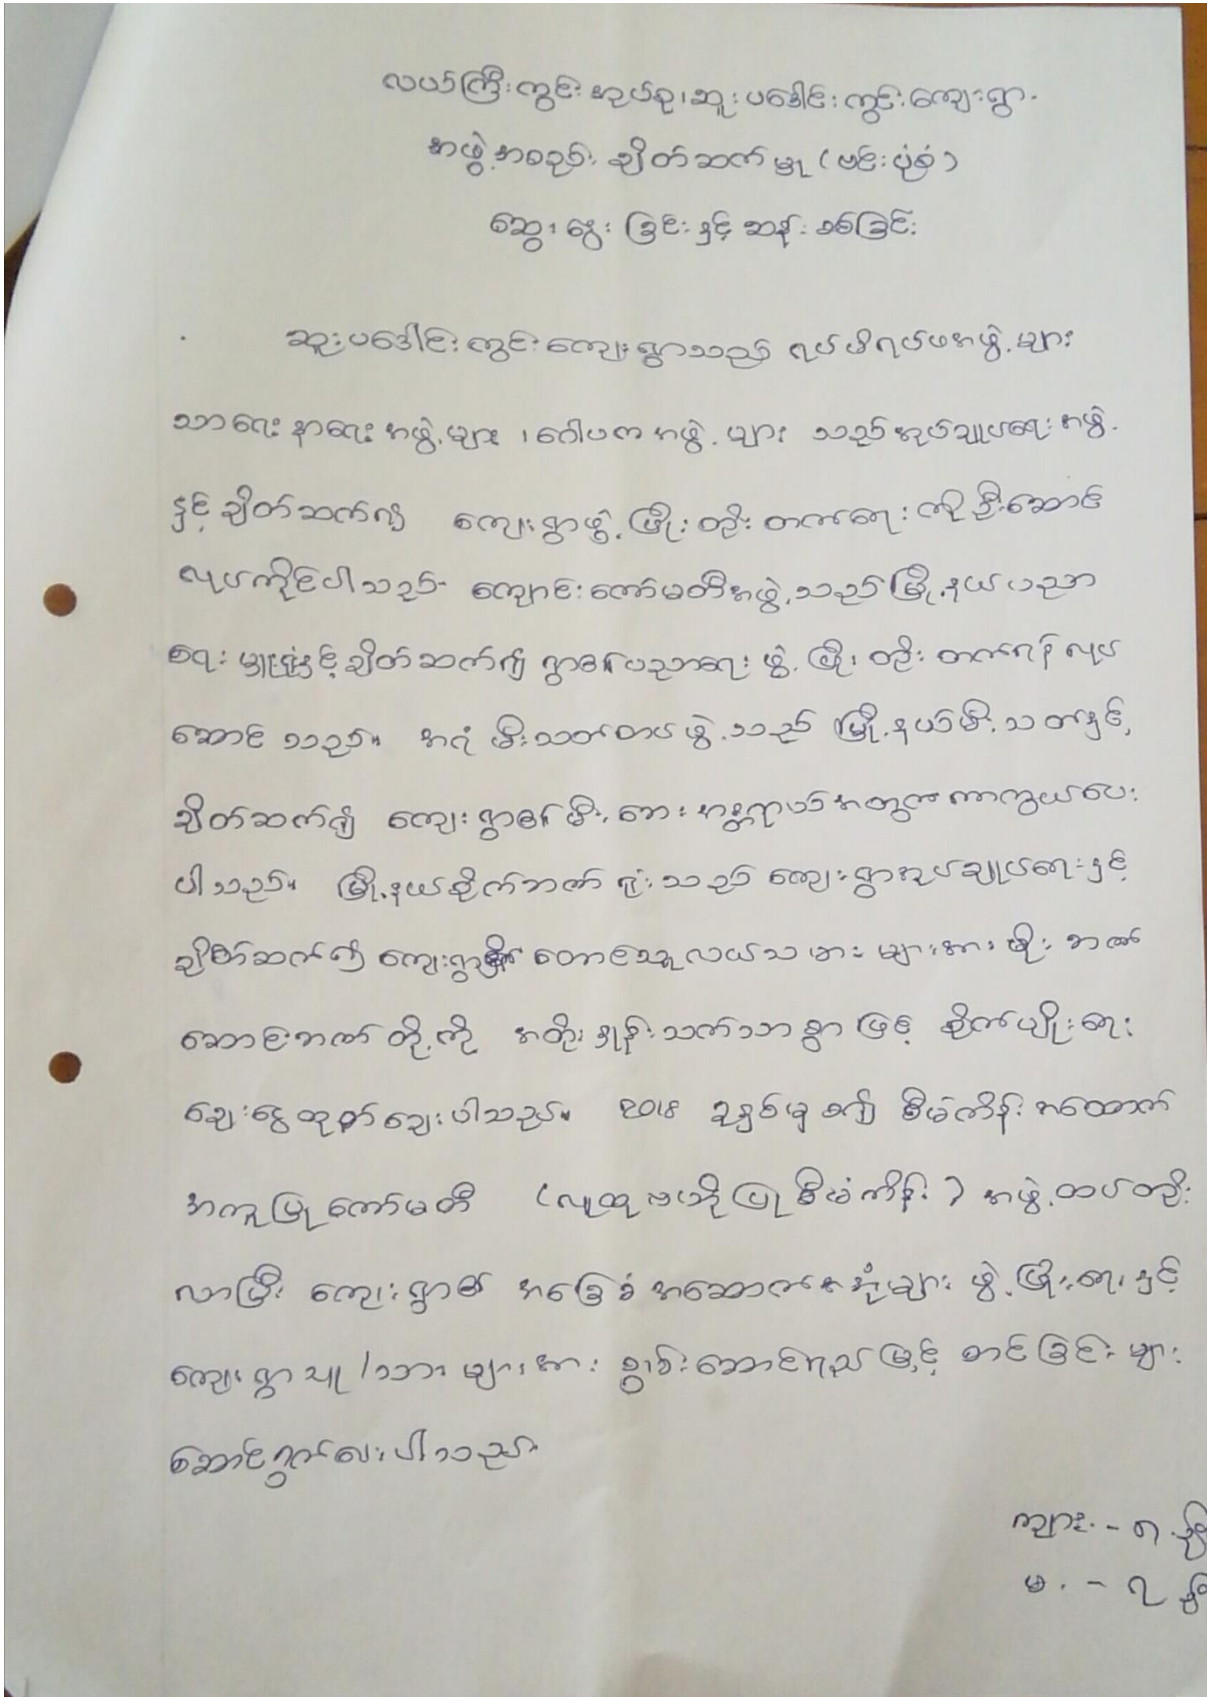 လယ်ကြီးကွင်းအုပ်စု၊ဆူးပဒေါင်းကွင်းကျေးရွာ
အဖွဲ့အစည်း ချိတ်ဆက်မှု (ဗင်းပုံစံ)
ဆွေးနွေးခြင်းနှင့်ဆန်းစစ်ခြင်း
ဆူးပဒေါင်းကွင်းကျေးရွာသည် ရပ်မိရပ်ဖအဖွဲ့များ
သာရေးနာရေးအဖွဲ့များ ၊ဂေါပကအဖွဲ့များ သည်အုပ်ချုပ်ရေးအဖွဲ့
နှင့်ချိတ်ဆက်၍ ကျေးရွာဖွံ့ဖြိုးတိုးတက်ရေးကိုဦးဆောင်
လုပ်ကိုင်ပါသည်။ ကျောင်းကော်မတီအဖွဲ့သည်မြို့နယ်ပညာ
ရေးမှူးရုံးနှင့်ချိတ်ဆက်၍ ရွာ၏ပညာရေးဖွံ့ဖြိုးတိုးတက်ရန်လုပ်
ဆောင်သည်။ အရံမီးသတ်တပ်ဖွဲ့သည် မြို့နယ်မီးသတ်နှင့်
ချိတ်ဆက်၍ ကျေးရွာ၏မီးဘေးအန္တရာယ်အတွက်ကာကွယ်ပေး
ပါသည်။ မြို့နယ်စိုက်ဘဏ်ရုံးသည် ကျေးရွာအုပ်ချုပ်ရေးနှင့်
ချိတ်ဆက်၍ကျေးရွာရှိတောင်သူလယ်သမားများအားမိုးဘဏ်
ဆောင်းဘဏ်တို့ကို အတိုးနှုန်းသက်သာစွာဖြင့် စိုက်ပျိုးရေး
ချေးငွေထုတ်ချေးပါသည်။ ၂၀၁၈ ခုနှစ်မှစ၍ စီမံကိန်းအထောက်
အကူပြုကော်မတီ (လူထုဗဟိုပြုစီမံကိန်း) အဖွဲ့ထပ်တိုး
လာပြီး ကျေးရွာ၏ အခြေခံအဆောက်အအုံများဖွံ့ဖြိုးရေးနှင့်
ကျေးရွာသူ/သားများအား စွမ်းဆောင်ရည်မြှင့်တင်ခြင်းများ
ဆောင်ရွက်ပေးပါသည်။
ကျား - ၈ ဦး
မ - ၇ ဦး